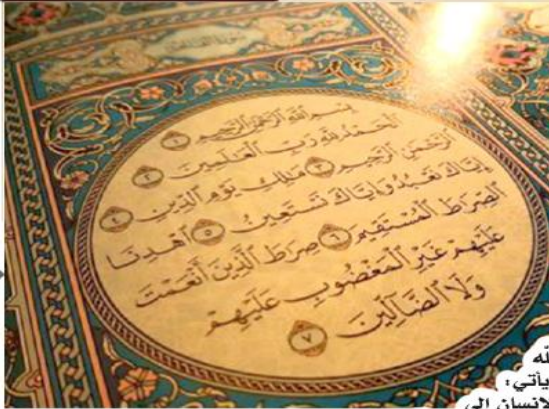 بِسْمِ ٱللَّهِ ٱلرَّحْمَٰنِ ٱلرَّحِيمِ ١
ٱلْحَمْدُ لِلَّهِ رَبِّ ٱلْعَٰلَمِينَ ٢
ٱلرَّحْمَٰنِ ٱلرَّحِيمِ ٣ مَٰلِكِ يَوْمِ ٱلدِّينِ ٤
إِيَّاكَ نَعْبُدُ وَإِيَّاكَ نَسْتَعِينُ ٥ ٱهْدِنَا
ٱلصِّرَٰطَ ٱلْمُسْتَقِيمَ ٦ صِرَٰطَ ٱلَّذِينَ أَنْعَمْتَ
عَلَيْهِمْ غَيْرِ ٱلْمَغْضُوبِ عَلَيْهِمْ
وَلَا ٱلضَّآلِّينَ ٧
لله
يأتي:
الإنسان إلى